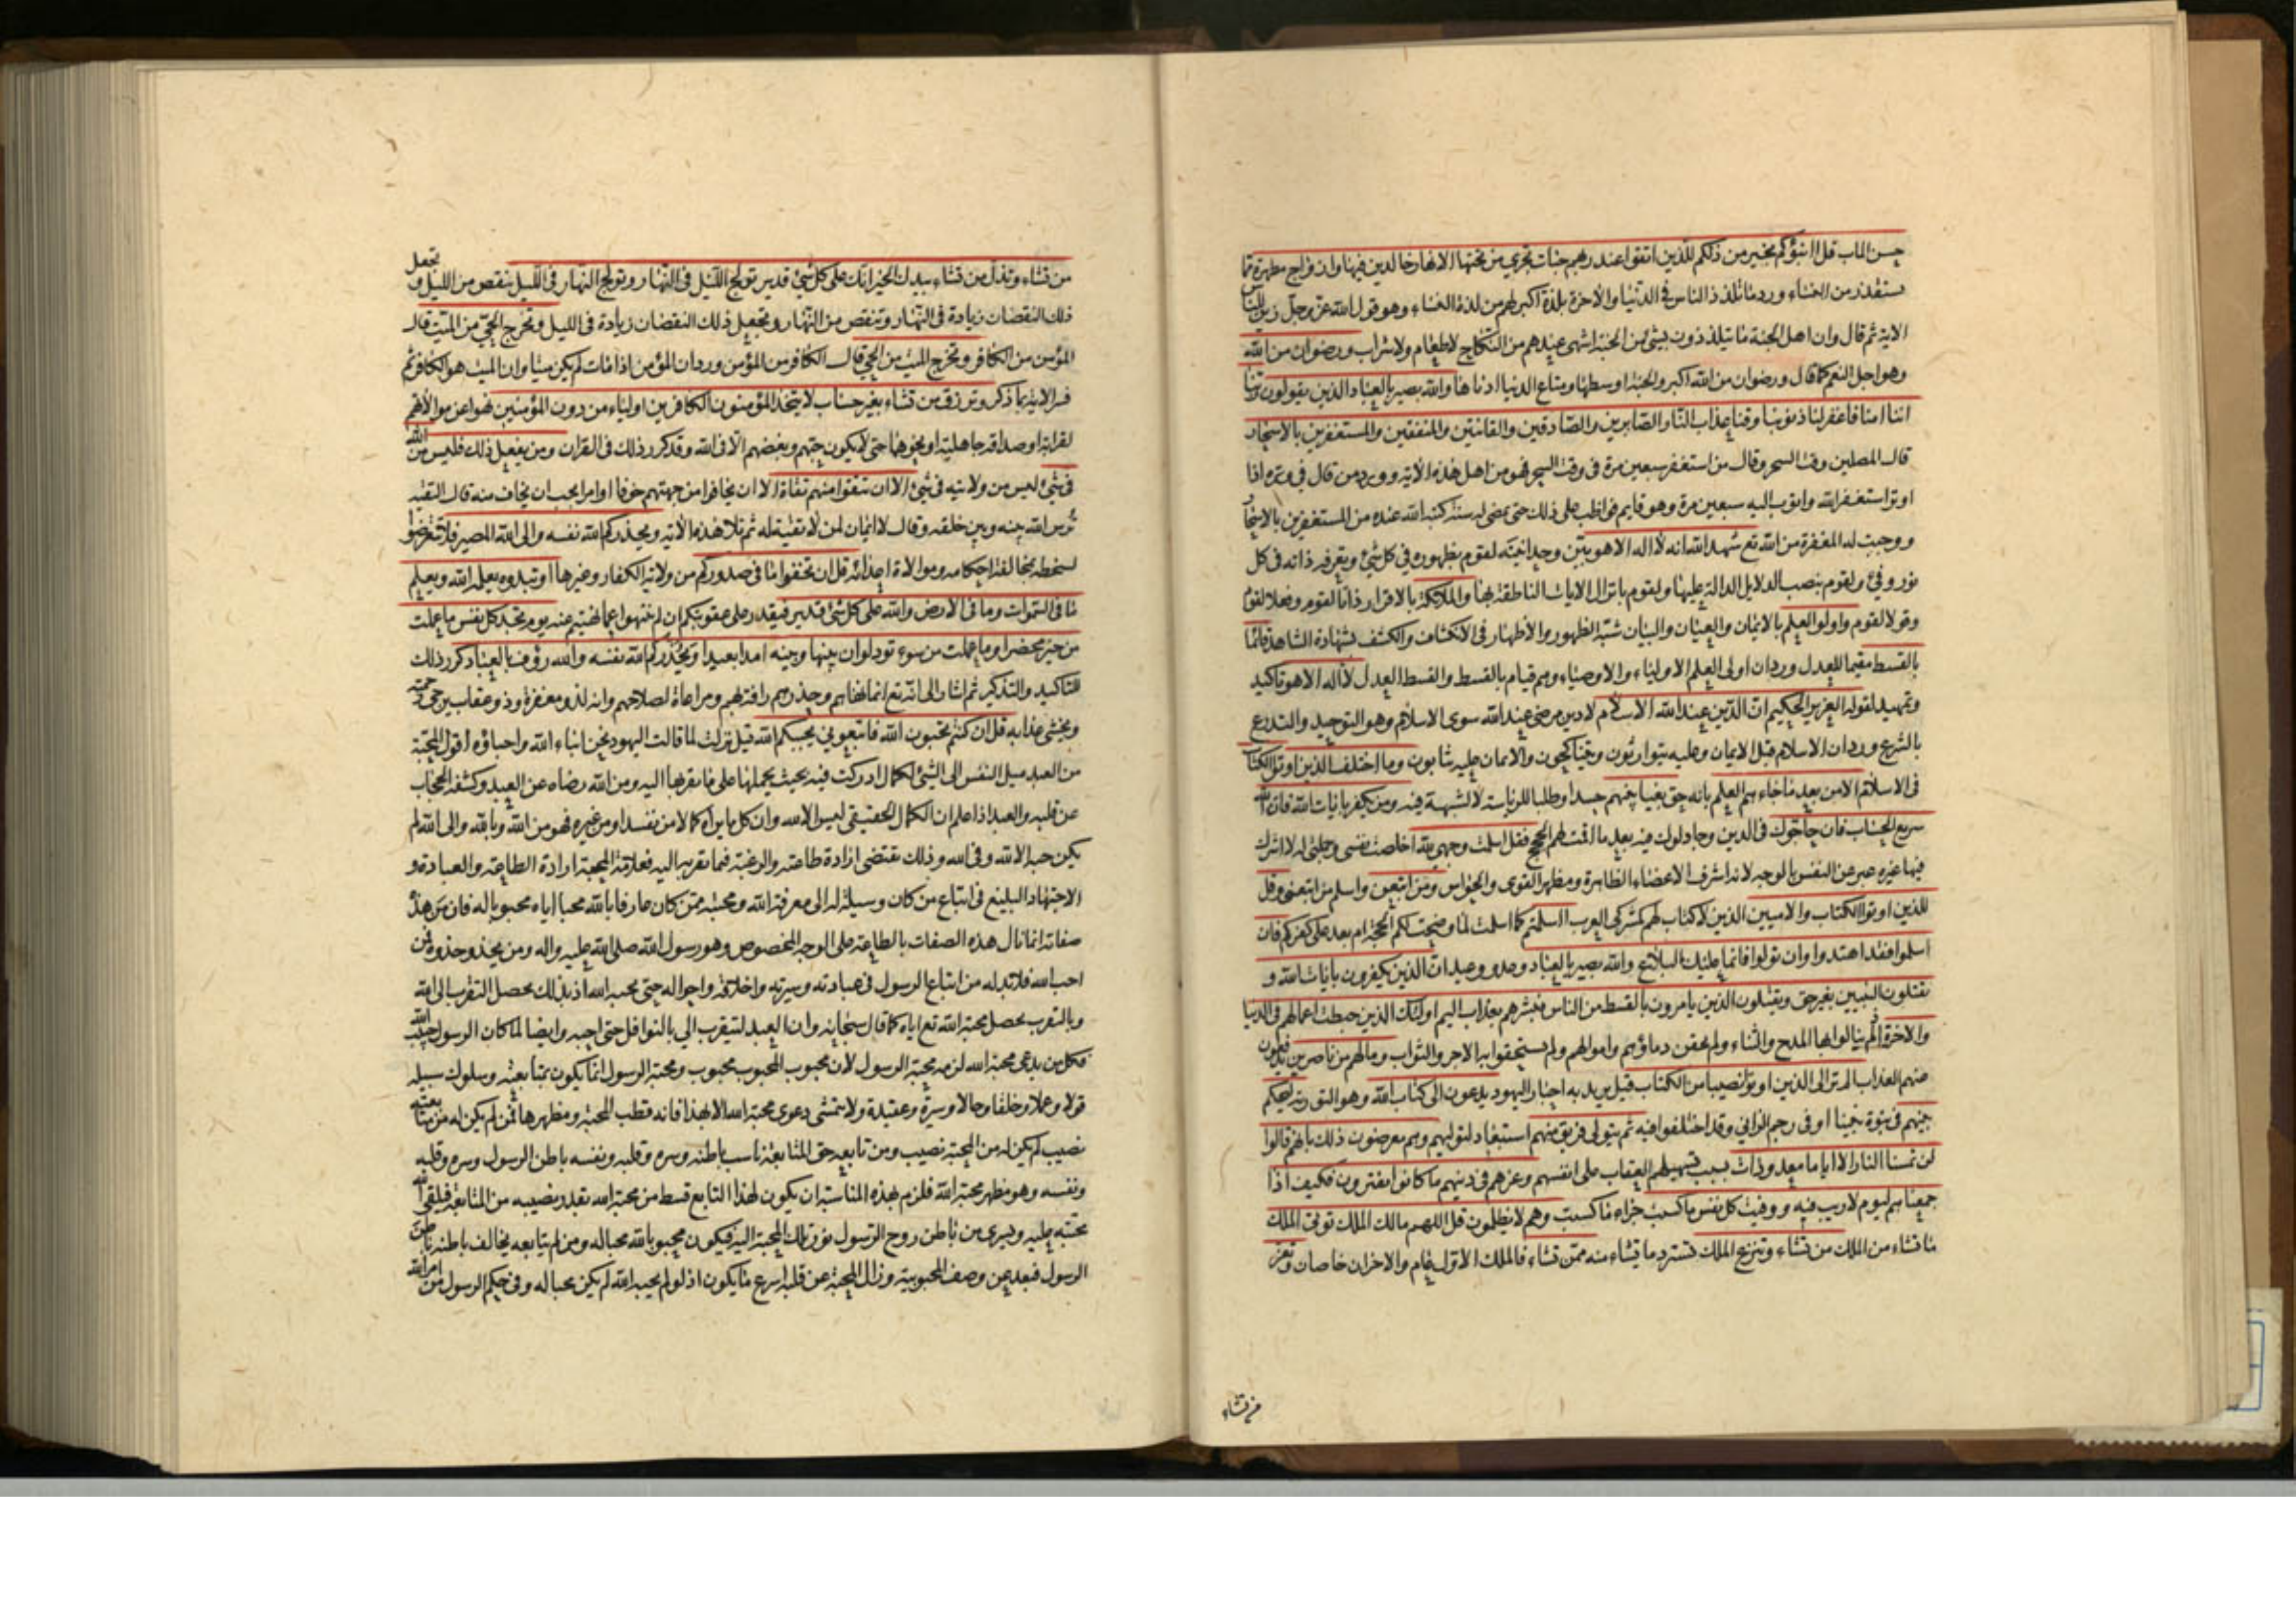 حسن المآب قل اانبؤكم بخير من ذلكم للذين اتقوا عند ربهم جنات تجري من تحتها الانهار خالدين فيها وازواج مطهرة مما
يستقذر من النساء ورد ما تلذذ الناس في الدنيا والاخرة بلذة اكبر لهم من لذة النساء وهو قول الله عز وجل زين للناس
الاية ثم قال وان اهل الجنة ما يتلذذون بشئ من الجنة اشهى عندهم من النكاح لا طعام ولا شراب ورضوان من الله
وهو اجل النعم كما قال ورضوان من الله اكبر والجنة اوسطها ومتاع الدنيا ادناها والله بصير بالعباد الذين يقولون ربنا
اننا امنا فاغفر لنا ذنوبنا وقنا عذاب النار الصابرين والصادقين والقانتين والمنفقين والمستغفرين بالاسحار
قال المصلين وقت السحر وقال من استغفر سبعين مرة في وقت السحر فهو من اهل هذه الاية وورد من قال في وتره اذا
اوتر استغفر الله واتوب اليه سبعين مرة وهو قايم فواظب على ذلك حتى يمضى له سنة كتبه الله عنده من المستغفرين بالاسحار
ووجبت له المغفرة من الله تع شهد الله انه لا اله الا هو بين وحدانيته لقوم بظهوره في كل شئ وتعرفه ذاته في كل
نور وفئ ولقوم بنصب الدلايل الدالة عليها ولقوم بانزال الايات الناطقة بها والملائكة بالاقرار ذاتا لقوم وفعلا لقوم
وقولا لقوم واولوا العلم بالايمان والعيان والبيان شبه الظهور والاظهار في الانكشاف والكشف بشهادة الشاهد قائما
بالقسط مقيما للعدل ورد ان اولى العلم الاولياء والاوصياء وهم قيام بالقسط والقسط العدل لا اله الا هو تاكيد
وتمهيد لقوله العزيز الحكيم ان الدين عند الله الاسلام لا دين مرضي عند الله سوى الاسلام وهو التوحيد والتدرع
بالشرع ورد ان الاسلام قبل الايمان وعليه يتوارثون ويتناكحون والايمان عليه يثابون وما اختلف الذين اوتوا الكتاب
في الاسلام الا من بعد ما جاءهم العلم بانه حق بغيا بينهم حسدا وطلبا للرياسة لا لشبهة فيه ومن يكفر بايات الله فان الله
سريع الحساب فان حاجوك في الدين وجادلوك فيه بعد ما اقمت لهم الحجج فقل اسلمت وجهي لله اخلصت نفسي وجملتي له لا اشرك
فيها غيره عبر عن النفس بالوجه لانه اشرف الاعضاء الظاهرة ومظهر القوى والحواس ومن اتبعن واسلم من اتبعنى وقل
للذين اوتوا الكتاب والاميين الذين لا كتاب لهم كمشركي العرب ااسلمتم كما اسلمت لما وضحت لكم الحجة ام بعد على كفركم فان
اسلموا فقد اهتدوا وان تولوا فانما عليك البلاغ والله بصير بالعباد وعد ووعيد ان الذين يكفرون بايات الله و
يقتلون النبيين بغير حق ويقتلون الذين يامرون بالقسط من الناس فبشرهم بعذاب اليم اولئك الذين حبطت اعمالهم في الدنيا
والاخرة لم ينالوا بها المدح والثناء ولم يحقن دماؤهم واموالهم ولم يستحقوا به الاجر والثواب وما لهم من ناصرين يدفعون
عنهم العذاب الم تر الى الذين اوتوا نصيبا من الكتاب قيل يريد به احبار اليهود يدعون الى كتاب الله وهو التورية ليحكم
بينهم في نبوة نبينا او في رجم الزاني وقد اختلفوا فيه ثم يتولى فريق منهم استبعاد لتوليهم وهم معرضون ذلك بانهم قالوا
لن تمسنا النار الا اياما معدودات بسبب تسهيلهم العقاب على انفسهم وغرهم في دينهم ما كانوا يفترون فكيف اذا
جمعناهم ليوم لا ريب فيه ووفيت كل نفس ما كسبت جزاء ما كسبت وهم لا يظلمون قل اللهم مالك الملك توتى الملك
ما تشاء من الملك من تشاء وتنزع الملك تسترد ما تشاء منه ممن تشاء فالملك الاول عام والاخران خاصان وتعز
من تشاء
من تشاء وتذل من تشاء بيدك الخير انك على كل شئ قدير تولج الليل في النهار وتولج النهار في الليل ينقص من الليل و تجعل
ذلك النقصان زيادة في النهار وتنقص من النهار وتجعل ذلك النقصان زيادة في الليل وتخرج الحي من الميت قال
المؤمن من الكافر وتخرج الميت من الحي قال الكافر من المؤمن ورد ان المؤمن اذا مات لم يكن ميتا وان الميت هو الكافر ثم
فسر الاية بما ذكر وترزق من تشاء بغير حساب لا يتخذ المؤمنون الكافرين اولياء من دون المؤمنين نهوا عن موالاتهم
لقرابة او صداقة جاهلية او نحوهما حتى لا يكون حبهم وبغضهم الا في الله وقد كرر ذلك في القران ومن يفعل ذلك فليس من الله
في شئ ليس من ولايته في شئ الا ان تتقوا منهم تقاة الا ان تخافوا من جهتهم خوفا او امرا يجب ان يخاف منه قال التقية
ترس الله بينه وبين خلقه وقال لا ايمان لمن لا تقية له ثم تلا هذه الاية ويحذركم الله نفسه والى الله المصير فلا تتعرضوا
لسخطه بمخالفة احكامه وموالاة اعدائه قل ان تخفوا ما في صدوركم من ولاية الكفار وغيرها او تبدوه يعلمه الله ويعلم
ما في السموات وما في الارض والله على كل شئ قدير فيقدر على عقوبتكم ان لم تنتهوا عما نهيتم عنه يوم تجد كل نفس ما عملت
من خير محضرا وما عملت من سوء تود لو ان بينها وبينه امدا بعيدا ويحذركم الله نفسه والله رؤف بالعباد كرر ذلك
للتاكيد والتذكير ثم اشار الى انه تع انما نهاهم وحذرهم رافة بهم ومراعاة لصلاحهم وانه لذو مغفرة وذو عقاب يرجى رحمته
ويخشى عذابه قل ان كنتم تحبون الله فاتبعوني يحببكم الله قيل نزلت لما قالت اليهود نحن ابناء الله واحباؤه اقول المحبة
من العبد ميل النفس الى الشئ لكمال ادركت فيه بحيث يحملها على ما يقربها اليه ومن الله رضاه عن العبد وكشفه الحجاب
عن قلبه والعبد اذا علم ان الكمال الحقيقي ليس الا لله وان كل ما يراه كمالا من نفسه او من غيره فهو من الله وبالله والى الله لم
يكن حبه الا لله وفي الله وذلك يقتضى ارادة طاعته والرغبة فيما يقربه اليه فعلامة المحبة ارادة الطاعة والعبادة و
الاجتهاد البليغ في اتباع من كان وسيلة له الى معرفة الله ومحبته ممن كان عارفا بالله محبا اياه محبوبا له فان من هذه
صفاته انما نال هذه الصفات بالطاعة على الوجه المخصوص وهو رسول الله صلى الله عليه واله ومن يحذو حذوه فمن
احب الله فلا بد له من اتباع الرسول في عبادته وسيرته واخلاقه واحواله حتى يحبه الله اذ بذلك يحصل التقرب الى الله
وبالتقرب يحصل محبة الله تع اياه كما قال سبحانه وان العبد ليتقرب الي بالنوافل حتى احبه وايضا لما كان الرسول حبيب الله
فكل من يدعى محبة الله لزمه محبة الرسول لان محبوب المحبوب محبوب ومحبة الرسول انما يكون بمتابعته وسلوك سبيله
قولا وعملا وخلقا وحالا وسيرة وعقيدة ولا يتمشى دعوى محبة الله الا بهذا فانه قطب المحبة ومظهرها فمن لم يكن له من متابعته
نصيب لم يكن له من المحبة نصيب ومن تابعه حق المتابعة ناسب باطنه وسره وقلبه ونفسه باطن الرسول وسره وقلبه
ونفسه وهو مظهر محبة الله فلزم بهذه المناسبة ان يكون لهذا التابع قسط من محبة الله بقدر نصيبه من المتابعة فيلقى الله
محبته عليه ويسرى من باطن روح الرسول نور تلك المحبة اليه فيكون محبوبا لله محبا له ومن لم يتابعه يخالف باطنه باطن
الرسول فبعد عن وصف المحبوبية وزال المحبة عن قلبه اسرع ما يكون اذ لو لم يحبه الله لم يكن محبا له وفي حكم الرسول من امر الله